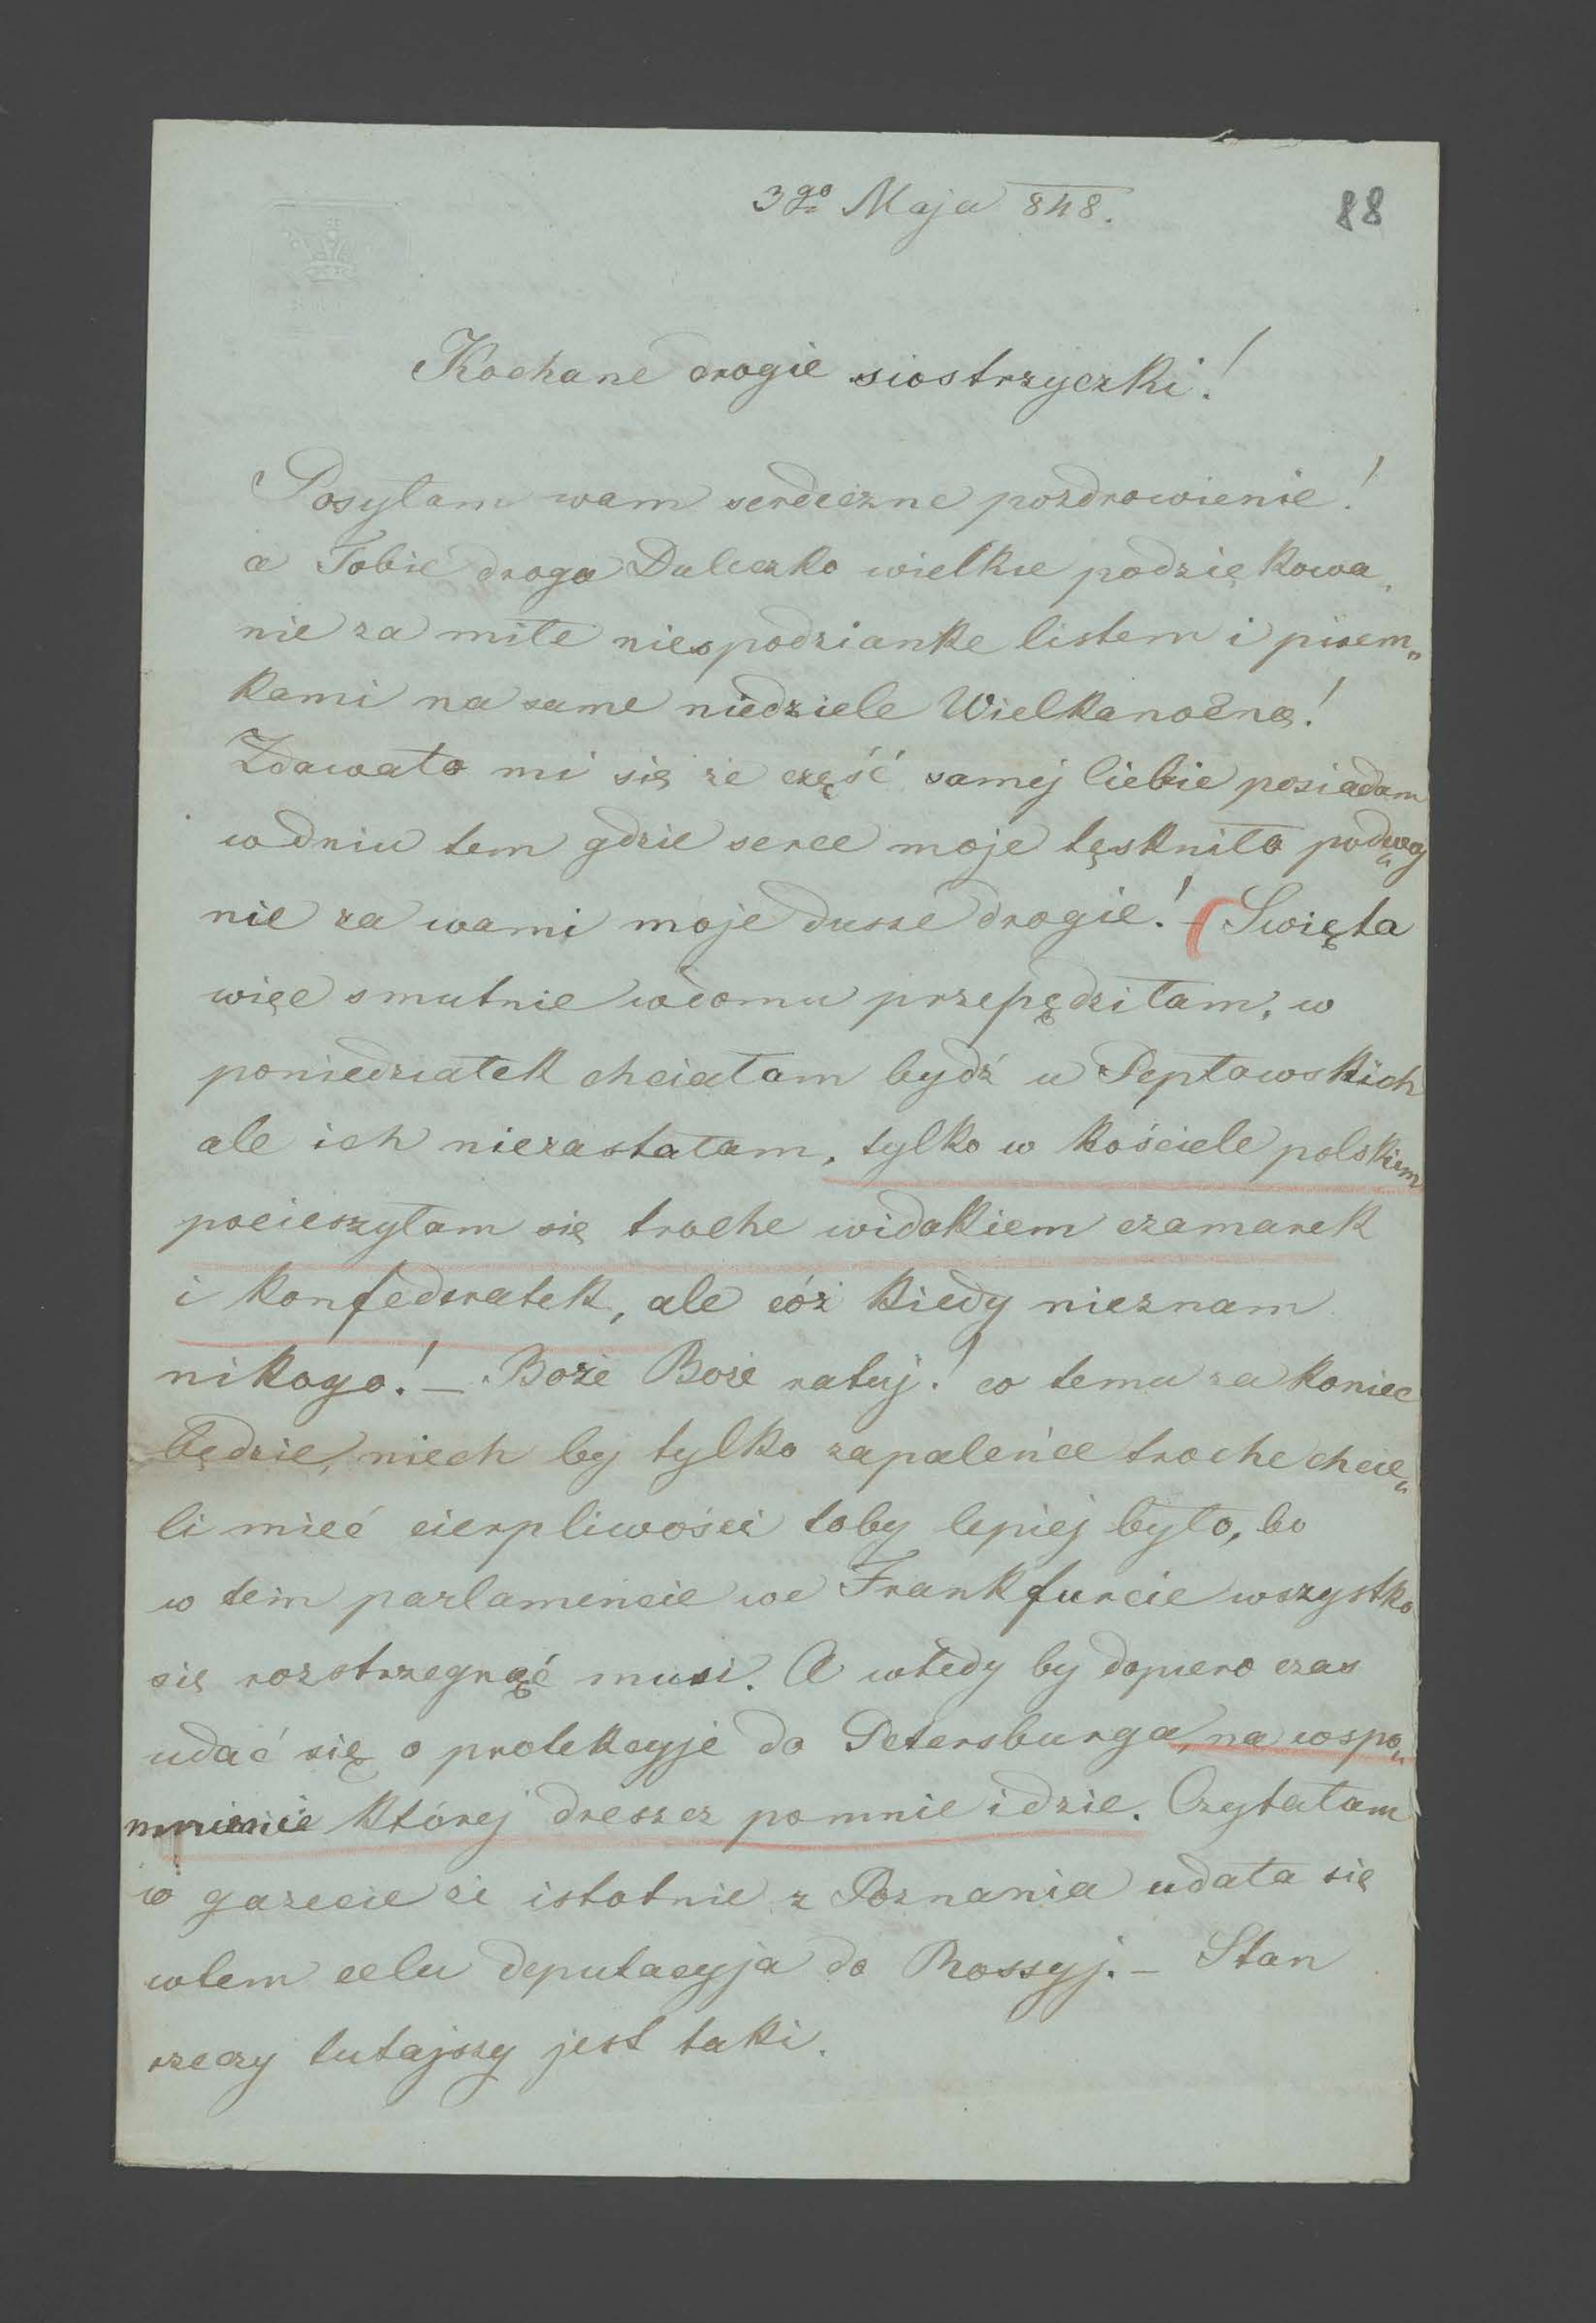 3go Maja 848.
88
Kochane drogie siostrzyczki!
Posyłam wam serdeczne pozdrowienie!
a Tobie droga Dulczko wielkie podziękowa„
nie za miłe niespodzianke listem i pisem„
kami na same niedziele Wielkanocną!
Zdawało mi się że część samej Ciebie posiadam
w dniu tem gdzie serce moje tęskniło podwoj„
nie za wami moje dusze drogie! – Swięta
więc smutnie w domu przepędziłam, w
poniedziałek chciałam bydź u Peptowskich
ale ich niezastałam, tylko w kościele polskiem
pocieszyłam się troche widokiem czamarek
i konfederatek, ale cóż kiedy nieznam
nikogo! – Boże Boże ratuj! co temu za koniec
będzie, niech by tylko zapaleńce troche chcie„
li mieć cierpliwości toby lepiej było, bo
w tem parlamencie we Frankfurcie wszystko
się rozstrzegnąć musi. A wtedy by dopiero czas
udać się o protekcyje do Petersburga, na wspo„
mnienie której dreszcz pomnie idzie. Czytałam
w gazecie że istotnie z Poznania udała się
wtem celu deputacyja do Rossyj. – Stan
rzeczy tutajszy jest taki.